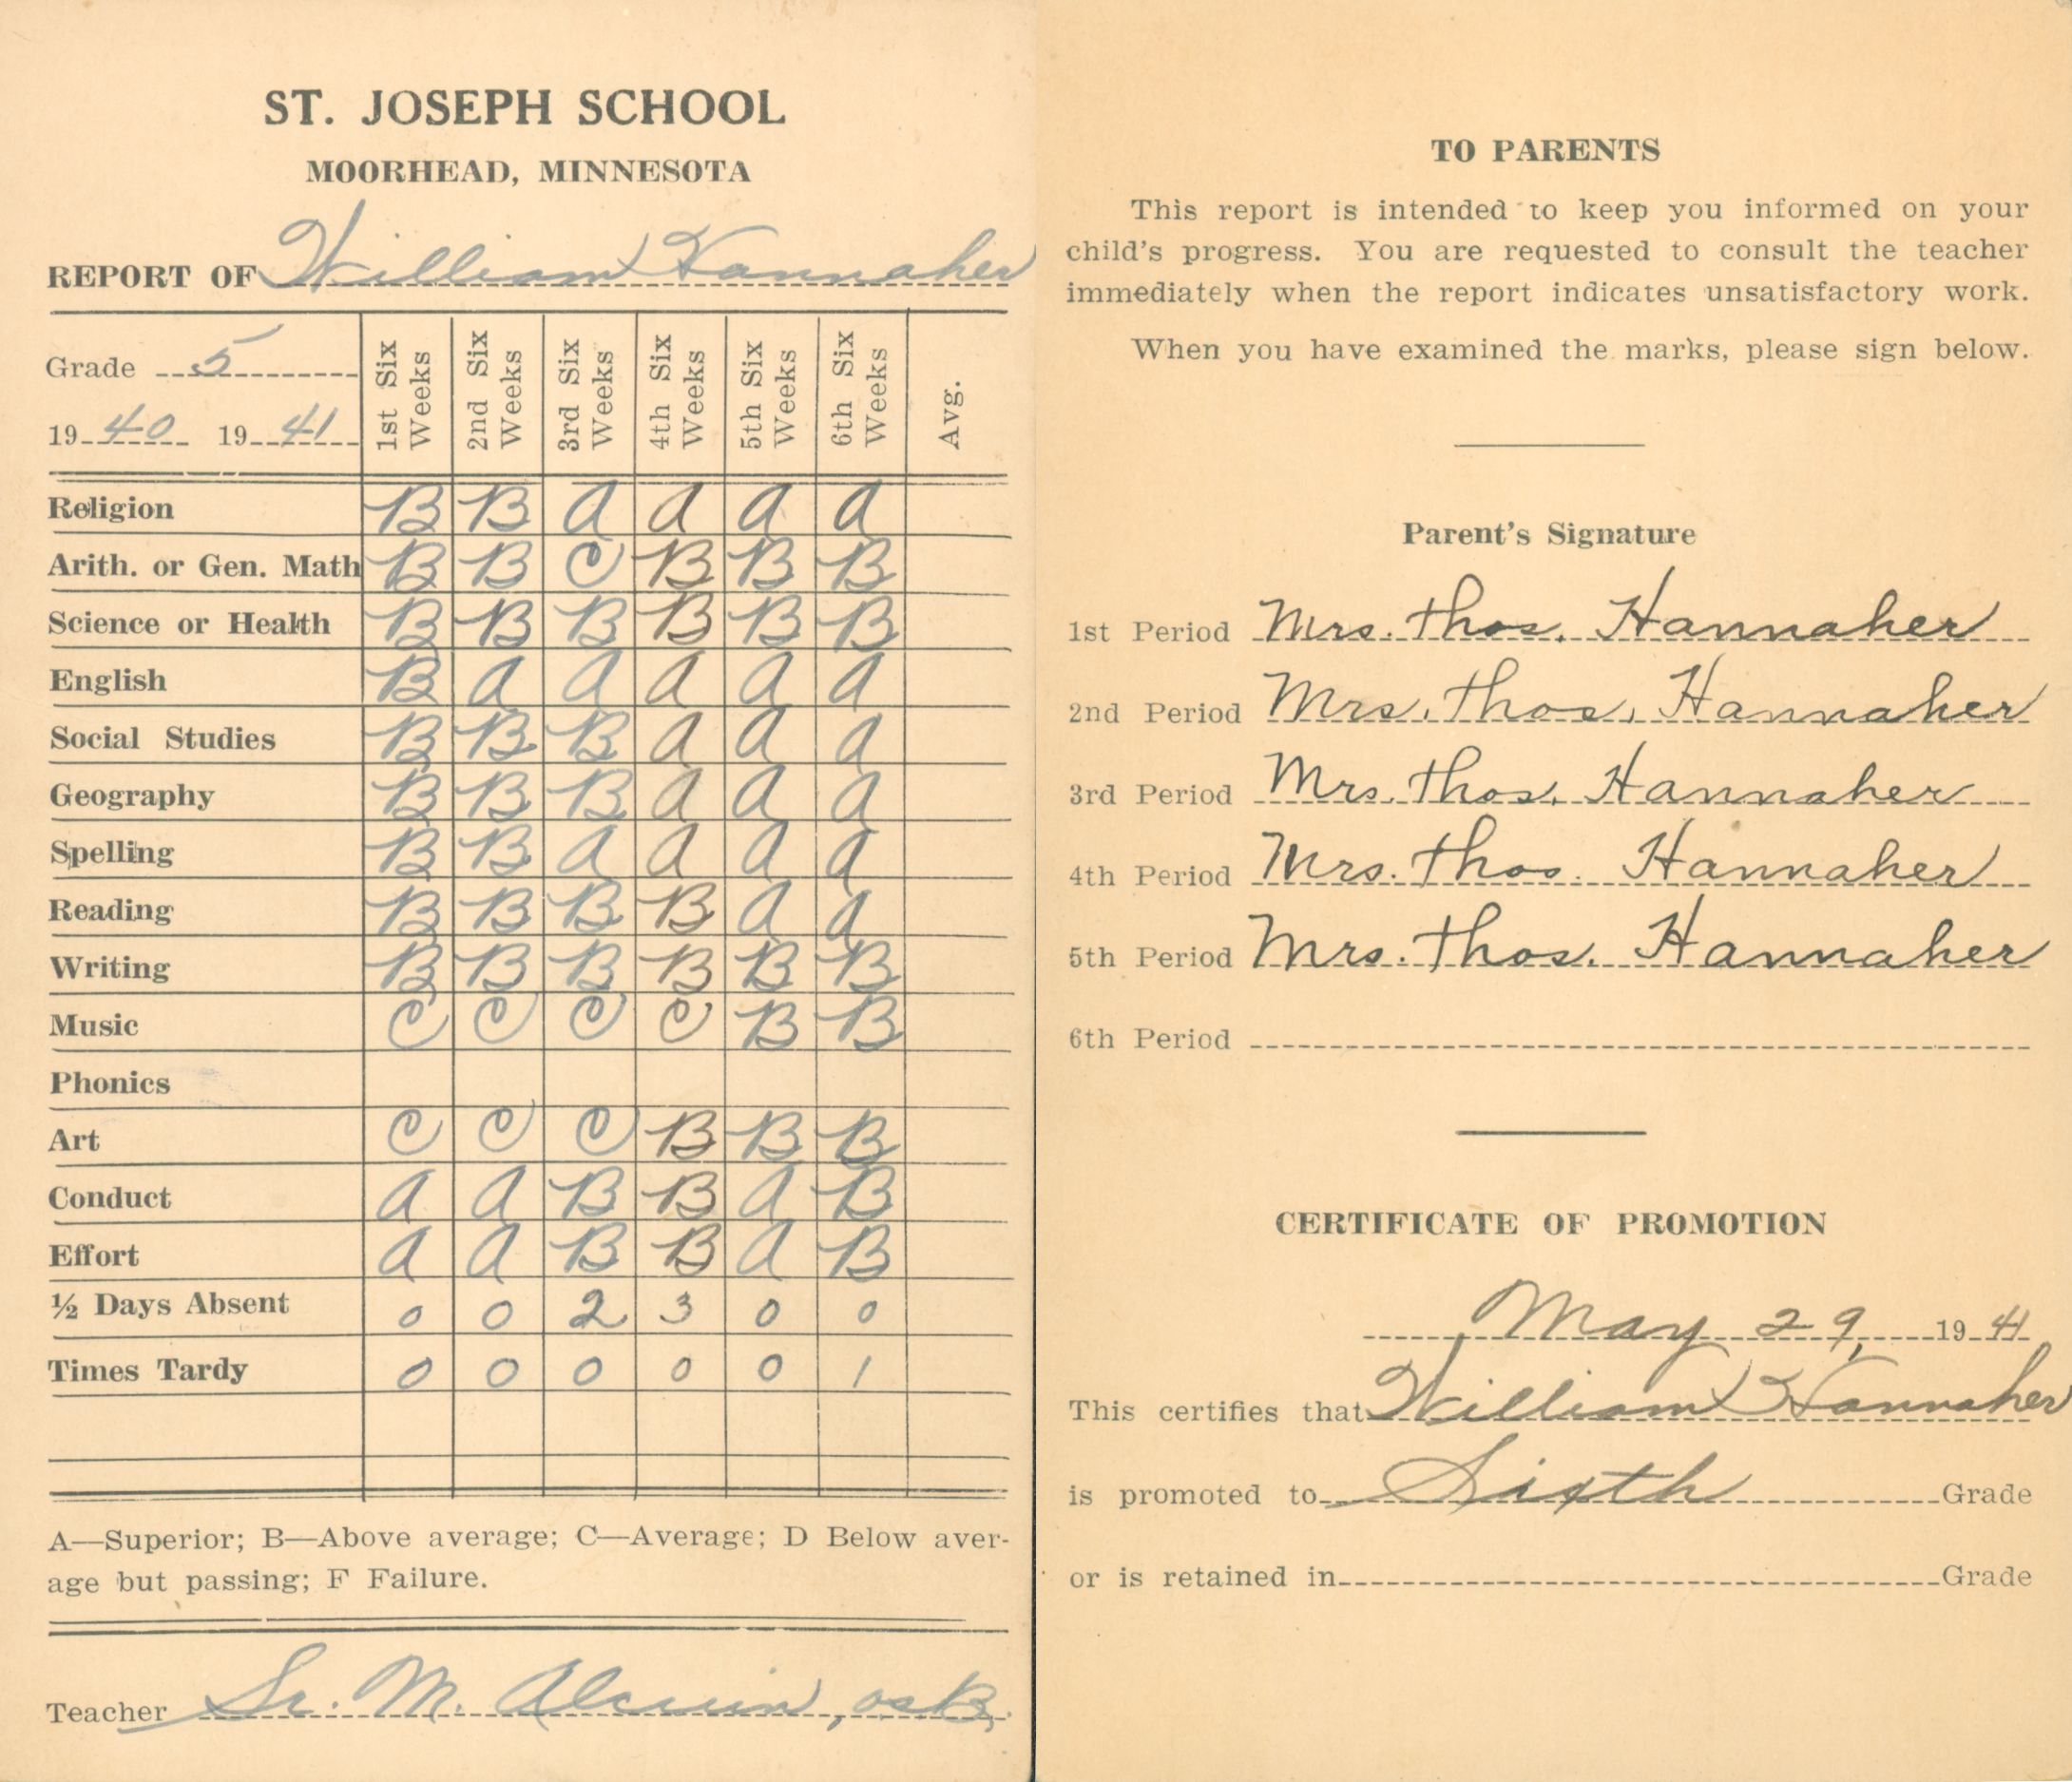 ST. JOSEPH SCHOOL
MOORHEAD, MINNESOTA
REPORT OF William Hannaher
Grade 5
1940 1941
1st Six Weeks 2nd Six Weeks 3rd Six Weeks 4th Six Weeks 5th Six Weeks 6th Six Weeks Avg.
Religion B B A A A A
Arith. or Gen. Math B B C B B B
Science or Health B B B B B B
English B A A A A A
Social Studies B B B A A A
Geography B B B A A A
Spelling B B A A A A
Reading B B B B A A
Writing B B B B B B
Music C C C C B B
Phonics
Art C C C B B B
Conduct A A B B A B
Effort A A B B A B
½ Days Absent 0 0 2 3 0 0
Times Tardy 0 0 0 0 0 1
A—Superior; B—Above average; C—Average; D Below aver-
age but passing; F Failure.
Teacher Sr. M. Alcuin, OSB.
TO PARENTS
This report is intended to keep you informed on your
child's progress. You are requested to consult the teacher
immediately when the report indicates unsatisfactory work.
When you have examined the marks, please sign below.
Parent's Signature
1st Period Mrs. Thos. Hannaher
2nd Period Mrs. Thos. Hannaher
3rd Period Mrs. Thos. Hannaher
4th Period Mrs. Thos. Hannaher
5th Period Mrs. Thos. Hannaher
6th Period
CERTIFICATE OF PROMOTION
May 29, 1941
This certifies that William Hannaher
is promoted to Sixth Grade
or is retained in Grade